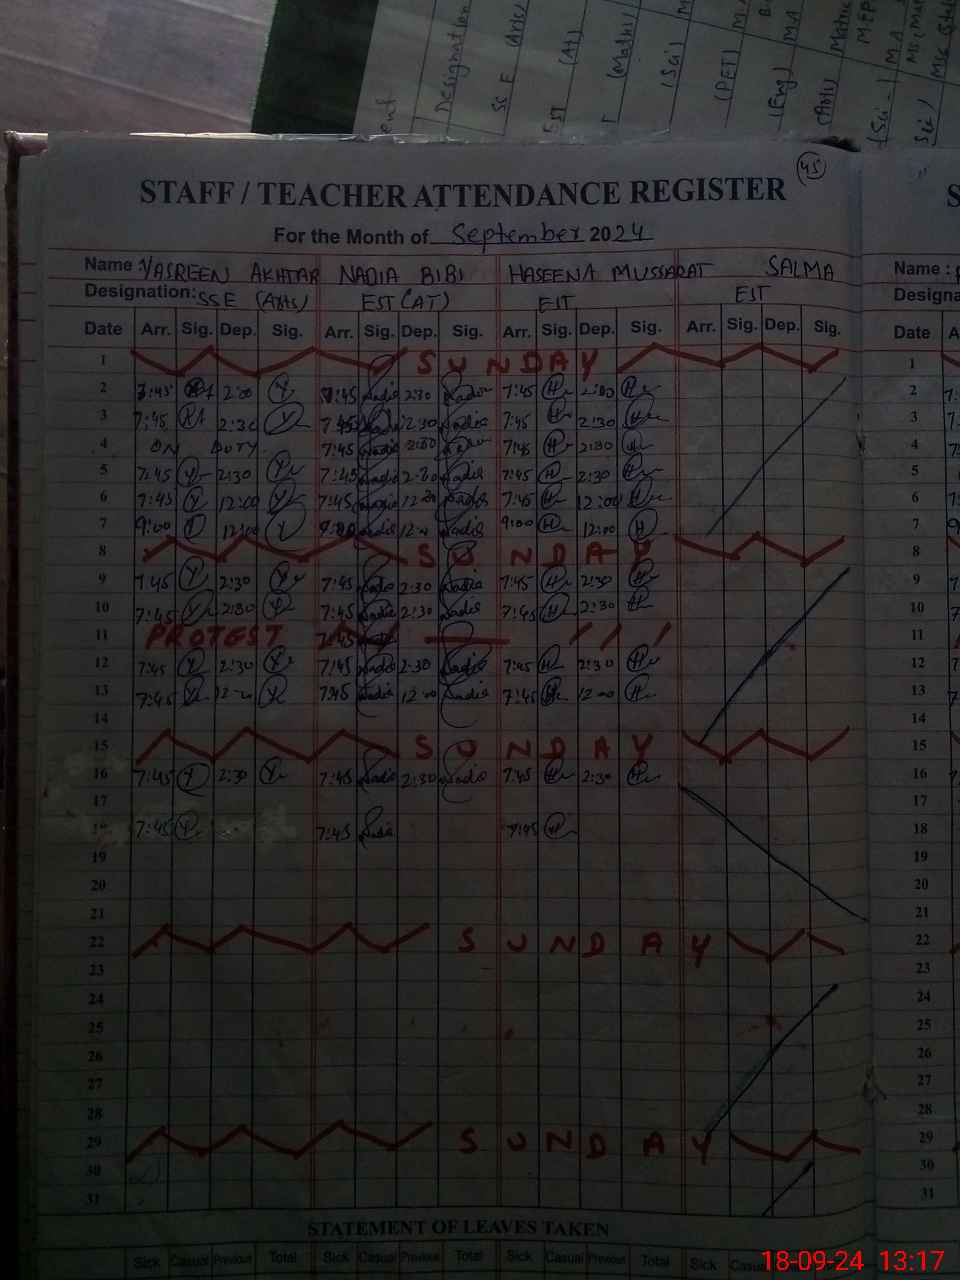 Designation
SSE (Arts)
EST (AT)
(Maths)
(Sci)
(PET)
(Eng) MA
(Arts) Matric
45
STAFF / TEACHER ATTENDANCE REGISTER
For the Month of September 2024
Name : YASREEN AKHTAR NADIA BIBI HASEENA MUSSARAT SALMA Name :
Designation: SSE (Arts) EST (AT) EST EST
Date Arr. Sig. Dep. Sig. Arr. Sig. Dep. Sig. Arr. Sig. Dep. Sig. Arr. Sig. Dep. Sig. Date
1 SUNDAY 1
2 7:45 2:30 7:45 Nadia 2:30 Nadia 7:45 H 2:30 H 2
3 7:45 2:30 7:45 Nadia 2:30 Nadia 7:45 H 2:30 H 3
4 ON DUTY 7:45 Nadia 2:30 Nadia 7:45 H 2:30 H 4
5 7:45 Y 2:30 Y 7:45 Nadia 2:30 Nadia 7:45 H 2:30 H 5
6 7:45 Y 12:00 Y 7:45 Nadia 12:00 Nadia 7:45 H 12:00 H 6
7 9:00 Y 12:00 Y 9:00 Nadia 12:00 Nadia 9:00 H 12:00 H 7
8 SUNDAY 8
9 7:45 Y 2:30 Y 7:45 Nadia 2:30 Nadia 7:45 H 2:30 H 9
10 7:45 Y 2:30 Y 7:45 Nadia 2:30 Nadia 7:45 H 2:30 H 10
11 PROTEST 7:45 11
12 7:45 Y 2:30 Y 7:45 Nadia 2:30 Nadia 7:45 H 2:30 H 12
13 7:45 Y 12:00 Y 7:45 Nadia 12:00 Nadia 7:45 H 12:00 H 13
14 14
15 SUNDAY 15
16 7:45 Y 2:30 Y 7:45 Nadia 2:30 Nadia 7:45 H 2:30 H 16
17 17
18 7:45 Y 7:45 Nadia 7:45 H 18
19 19
20 20
21 21
22 SUNDAY 22
23 23
24 24
25 25
26 26
27 27
28 28
29 SUNDAY 29
30 30
31 31
STATEMENT OF LEAVES TAKEN
Sick Casual Previous Total Sick Casual Previous Total Sick Casual Previous Total Sick Casual
18-09-24 13:17